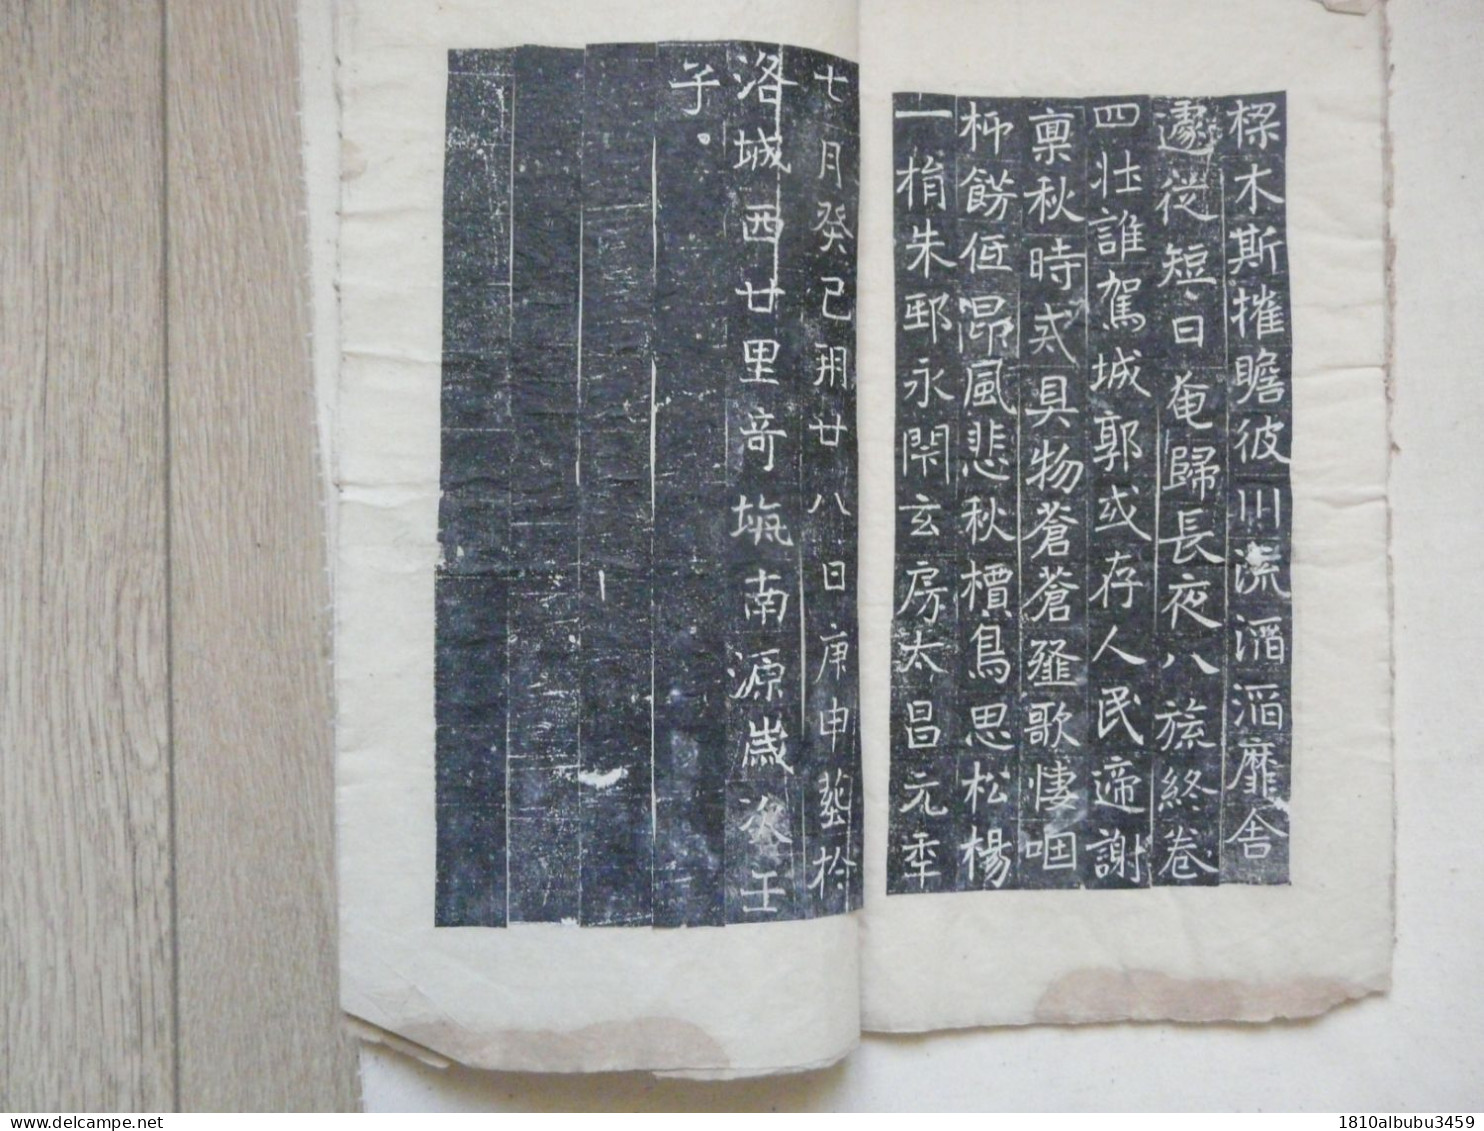 樑木斯摧瞻彼川流滔滔靡舍
遽從短日奄歸長夜八族終卷
四壯誰駕城郭或存人民遆謝
稟秋時戒具物蒼蒼薤歌悽咽
柳餝低昂風悲秋檟鳥思松楊
一捐朱邸永閇玄房太昌元年
七月癸巳朔廿八日庚申葬於
洛城西廿里奇坑南源歲次壬
子。
1810albubu3459